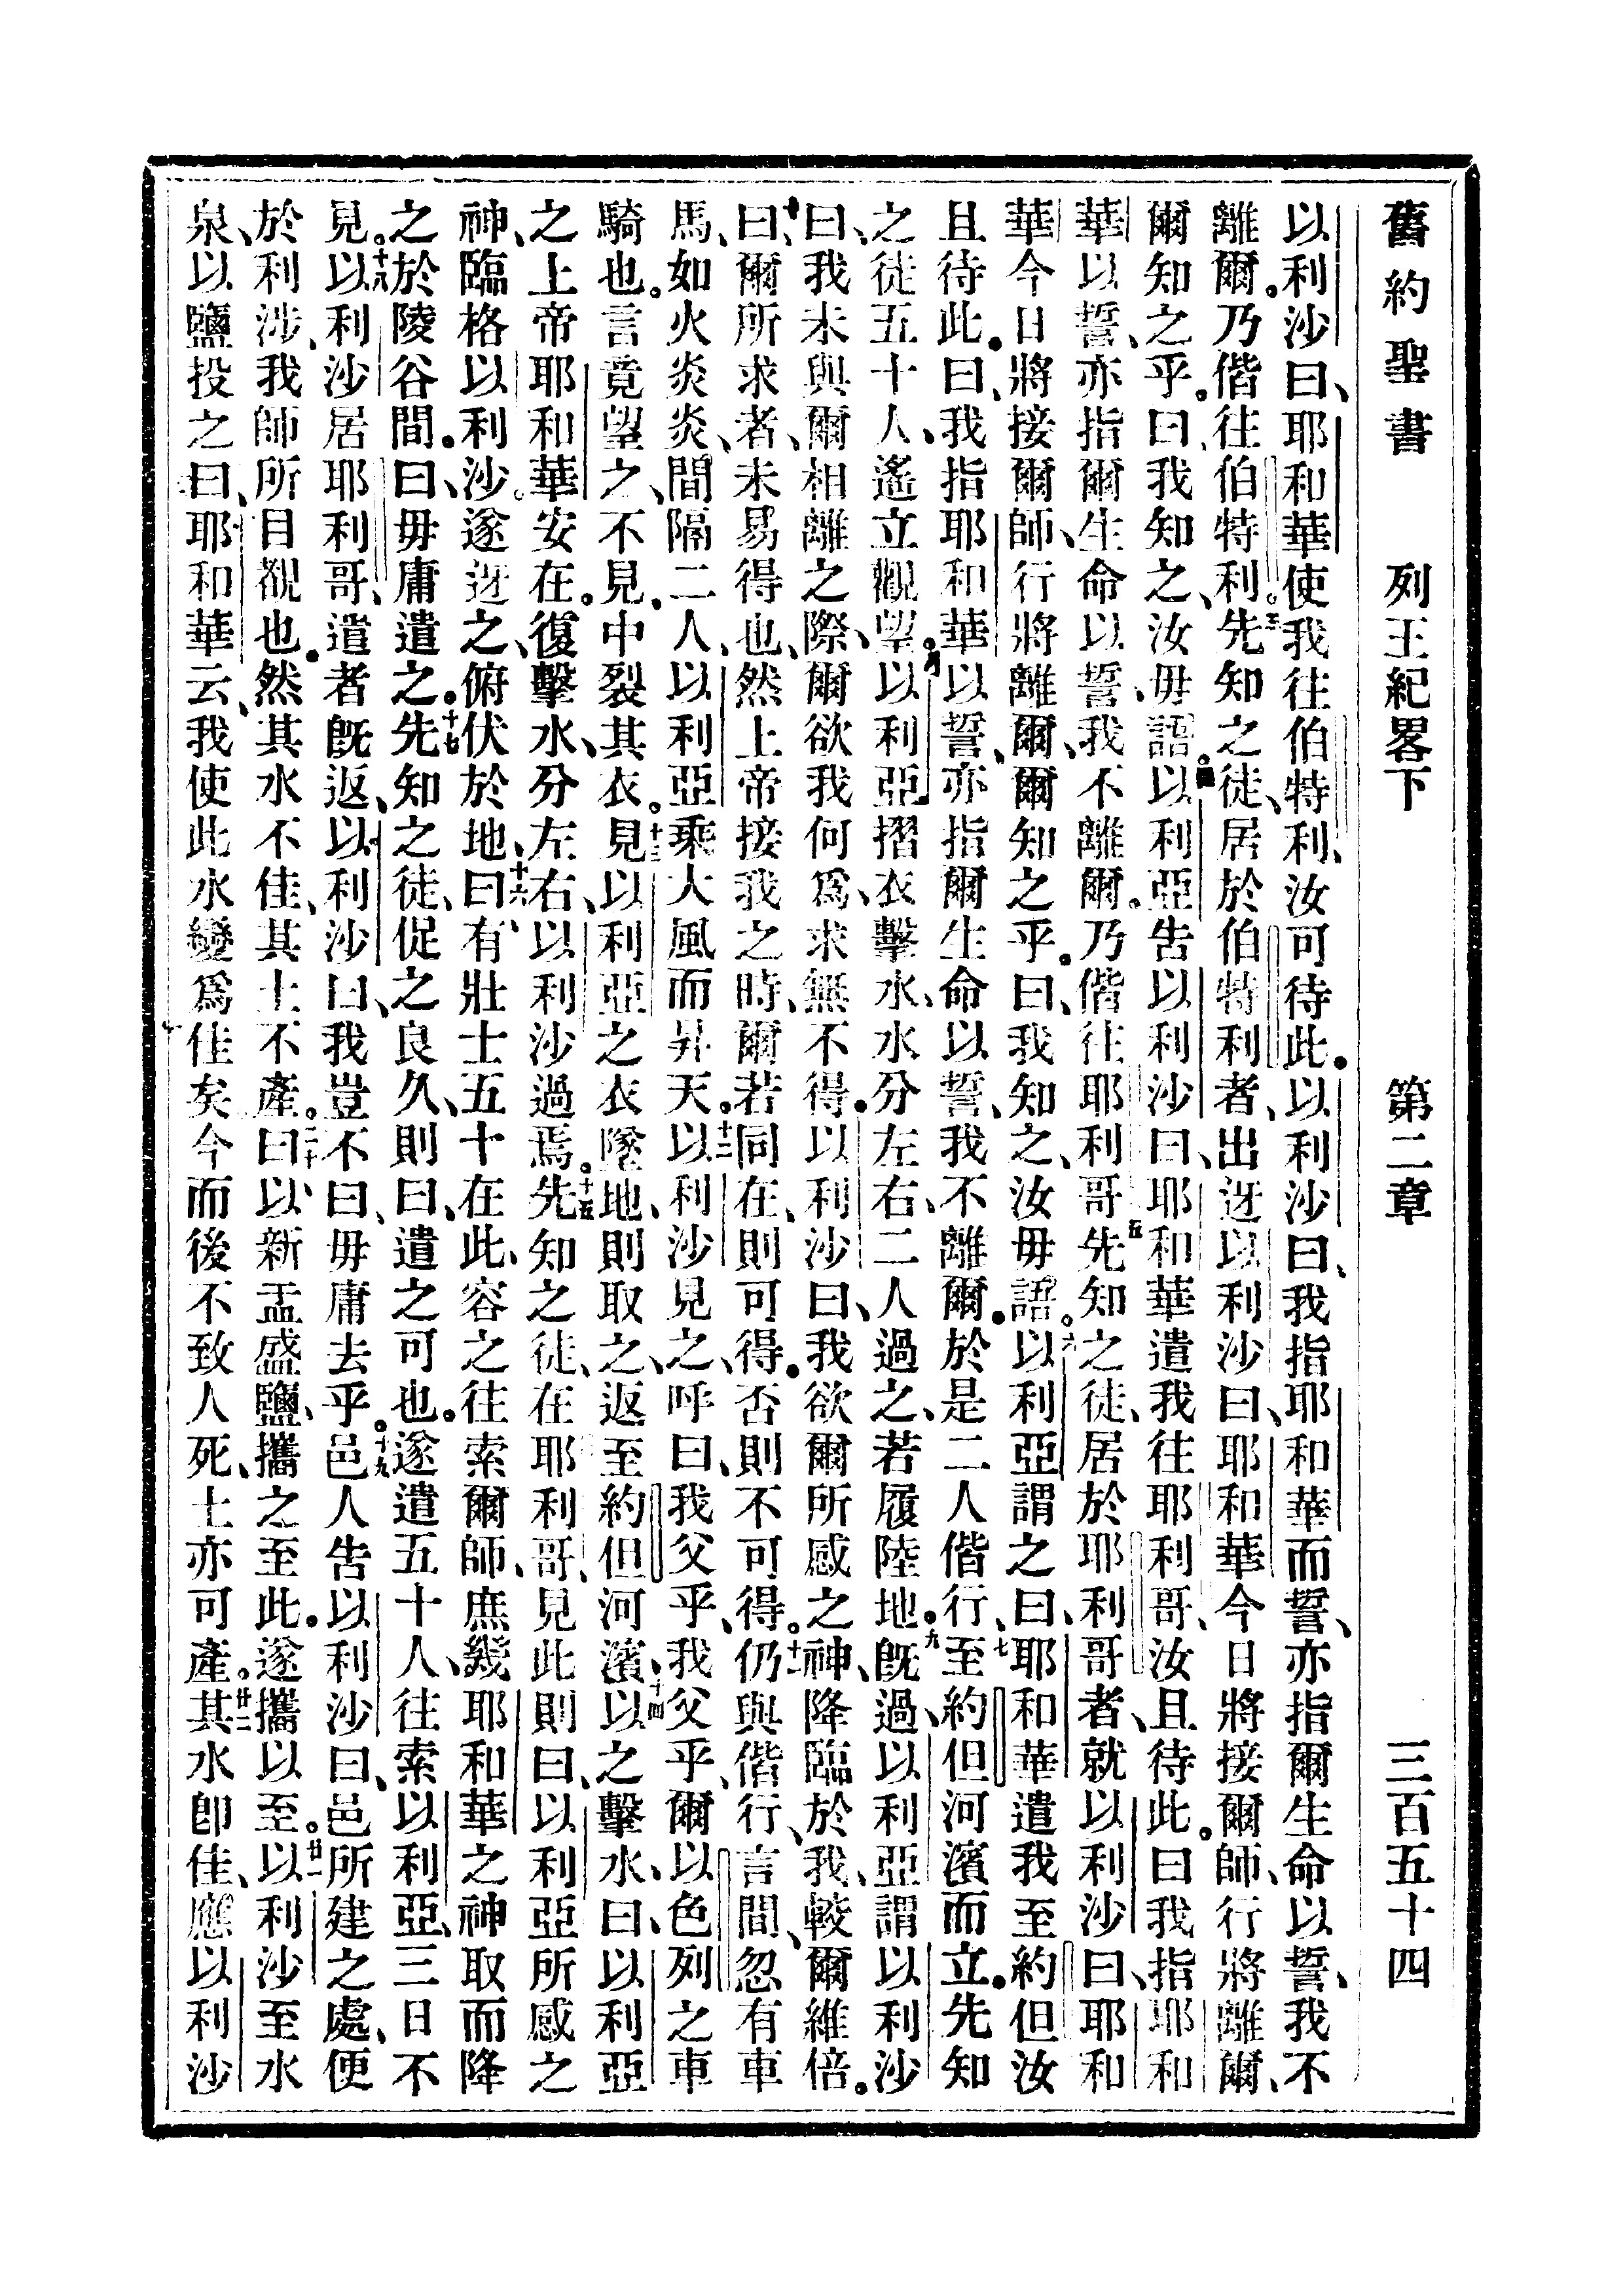 舊約聖書 列王紀畧下 第二章 三百五十四
以利沙曰、耶和華使我往伯特利、汝可待此。以利沙曰、我指耶和華而誓、亦指爾生命以誓、我不
離爾。乃偕往伯特利。三先知之徒、居於伯特利者、出迓以利沙曰、耶和華今日將接爾師、行將離爾、
爾知之乎。曰、我知之、汝毋語。四以利亞告以利沙曰、耶和華遣我往耶利哥、汝且待此。曰我指耶和
華以誓、亦指爾生命以誓、我不離爾。乃偕往耶利哥五先知之徒、居於耶利哥者、就以利沙曰、耶和
華今日將接爾師、行將離爾、爾知之乎。曰、我知之、汝毋語。六以利亞謂之曰、耶和華遣我至約但汝
且待此。曰、我指耶和華以誓、亦指爾生命以誓、我不離爾。於是二人偕行、七至約但河濱而立。先知
之徒五十人、遙立觀望。八以利亞摺衣擊水、水分左右、二人過之、若履陸地。九旣過、以利亞謂以利沙
曰、我未與爾相離之際、爾欲我何爲、求無不得。以利沙曰、我欲爾所感之神、降臨於我、較爾維倍。
十曰、爾所求者、未易得也、然上帝接我之時、爾若同在、則可得。否則不可得。十一仍與偕行、言間、忽有車
馬、如火炎炎、間隔二人、以利亞乘大風而昇天。十二以利沙見之、呼曰、我父乎、我父乎、爾以色列之車
騎也。言竟望之、不見、中裂其衣。十三見以利亞之衣墜地、則取之、返至約但河濱、十四以之擊水、曰、以利亞
之上帝耶和華安在。復擊水、分左右、以利沙過焉。十五先知之徒、在耶利哥、見此則曰、以利亞所感之
神、臨格以利沙。遂迓之、俯伏於地、十六曰、有壯士五十在此、容之往索爾師、庶幾耶和華之神取而降
之於陵谷間。曰、毋庸遣之。十七先知之徒、促之良久、則曰、遣之可也。遂遣五十人、往索以利亞、三日不
見。十八以利沙居耶利哥、遣者旣返、以利沙曰、我豈不曰、毋庸去乎。十九邑人告以利沙曰、邑所建之處、便
於利涉、我師所目覩也。然其水不佳、其土不產。二十曰、以新盂盛鹽、攜之至此。遂攜以至。廿一以利沙至水
泉、以鹽投之曰、耶和華云、我使此水變爲佳矣、今而後不致人死、土亦可產。廿二其水卽佳、應以利沙